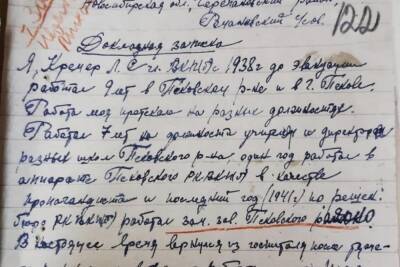 Новосибирская обл, Черепановский район
122
Докладная записка
Я, Кремер Л. С чл. ВКП(б) с 1938 г до эвакуации
работал 9 лет в Псковском р-не и в г. Пскове.
Работа моя протекала на разных должностях.
Работал 7 лет на должности учителя и директора
разных школ Псковского р-на, один год работал в
аппарате Псковского РК ВКП(б) в качестве
пропагандиста и последний год (1941 г) по решен.
бюро РК ВКП(б) работал зам. зав. Псковского районо
В настоящее время вернулся из госпиталя после